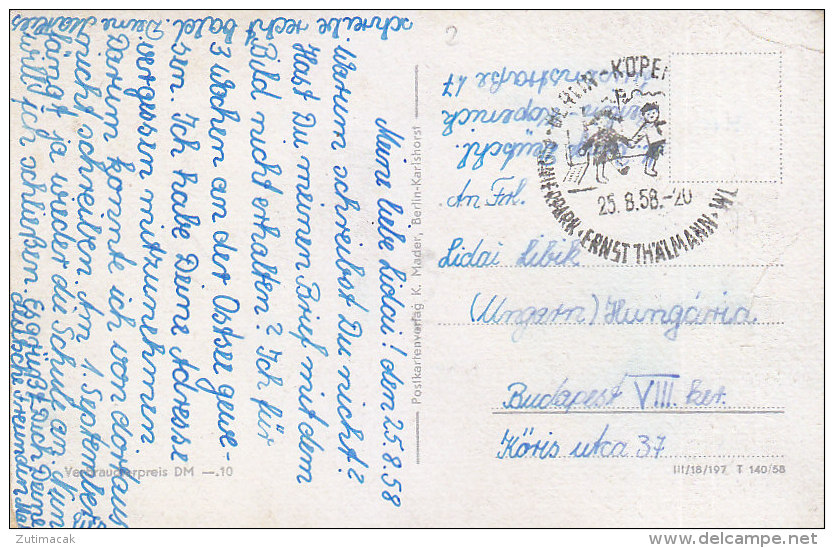 Meine liebe Lidai! den 25.8.58
Warum schreibst Du nicht?
Hast Du meinen Brief mit dem
Bild nicht erhalten? Ich für
3 Wochen an der Ostsee gewe-
sen. Ich habe Deine Adresse
vergessen mitzunehmen
Darum konnte ich von dort aus
nicht schreiben. Am 1. September
fängt ja wieder die Schule an. Nun
will ich schließen. Es grüßt Dich Deine
deutsche Freundin
schreibe recht bald. Deine
Postkartenverlag K. Mader, Berlin-Karlshorst
Verbraucherpreis DM —.10
2
BERLIN-KÖPE
25.8.58.-20
PARK · ERNST THÄLMANN ·
Berlin
Köpenick
An Frl.
Lidai Libik
(Ungarn) Hungária
Budapest VIII. ker.
Köris utca 37
III/18/197 T 140/58
© Zutimacak
delcampe.net